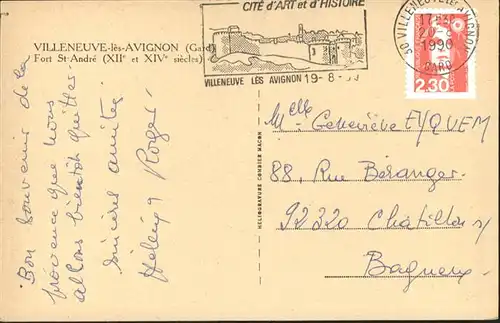 CITÉ d'ART et d'HISTOIRE
VILLENEUVE LÈS AVIGNON 19-8-
30 VILLENEUVE LES AVIGNON
1990
GARD
2,30
VILLENEUVE-lès-AVIGNON (Gard)
Fort St-André (XIIe et XIVe siècles)
Bon souvenir de la
provence que nous
allons bientôt quitter.
Sincères amitiés
Hélène & Roger
HELIOGRAVURE COMBIER MACON
Melle Geneviève EYQUEM
88, Rue Béranger.
92320 Châtillon s/
Bagneux